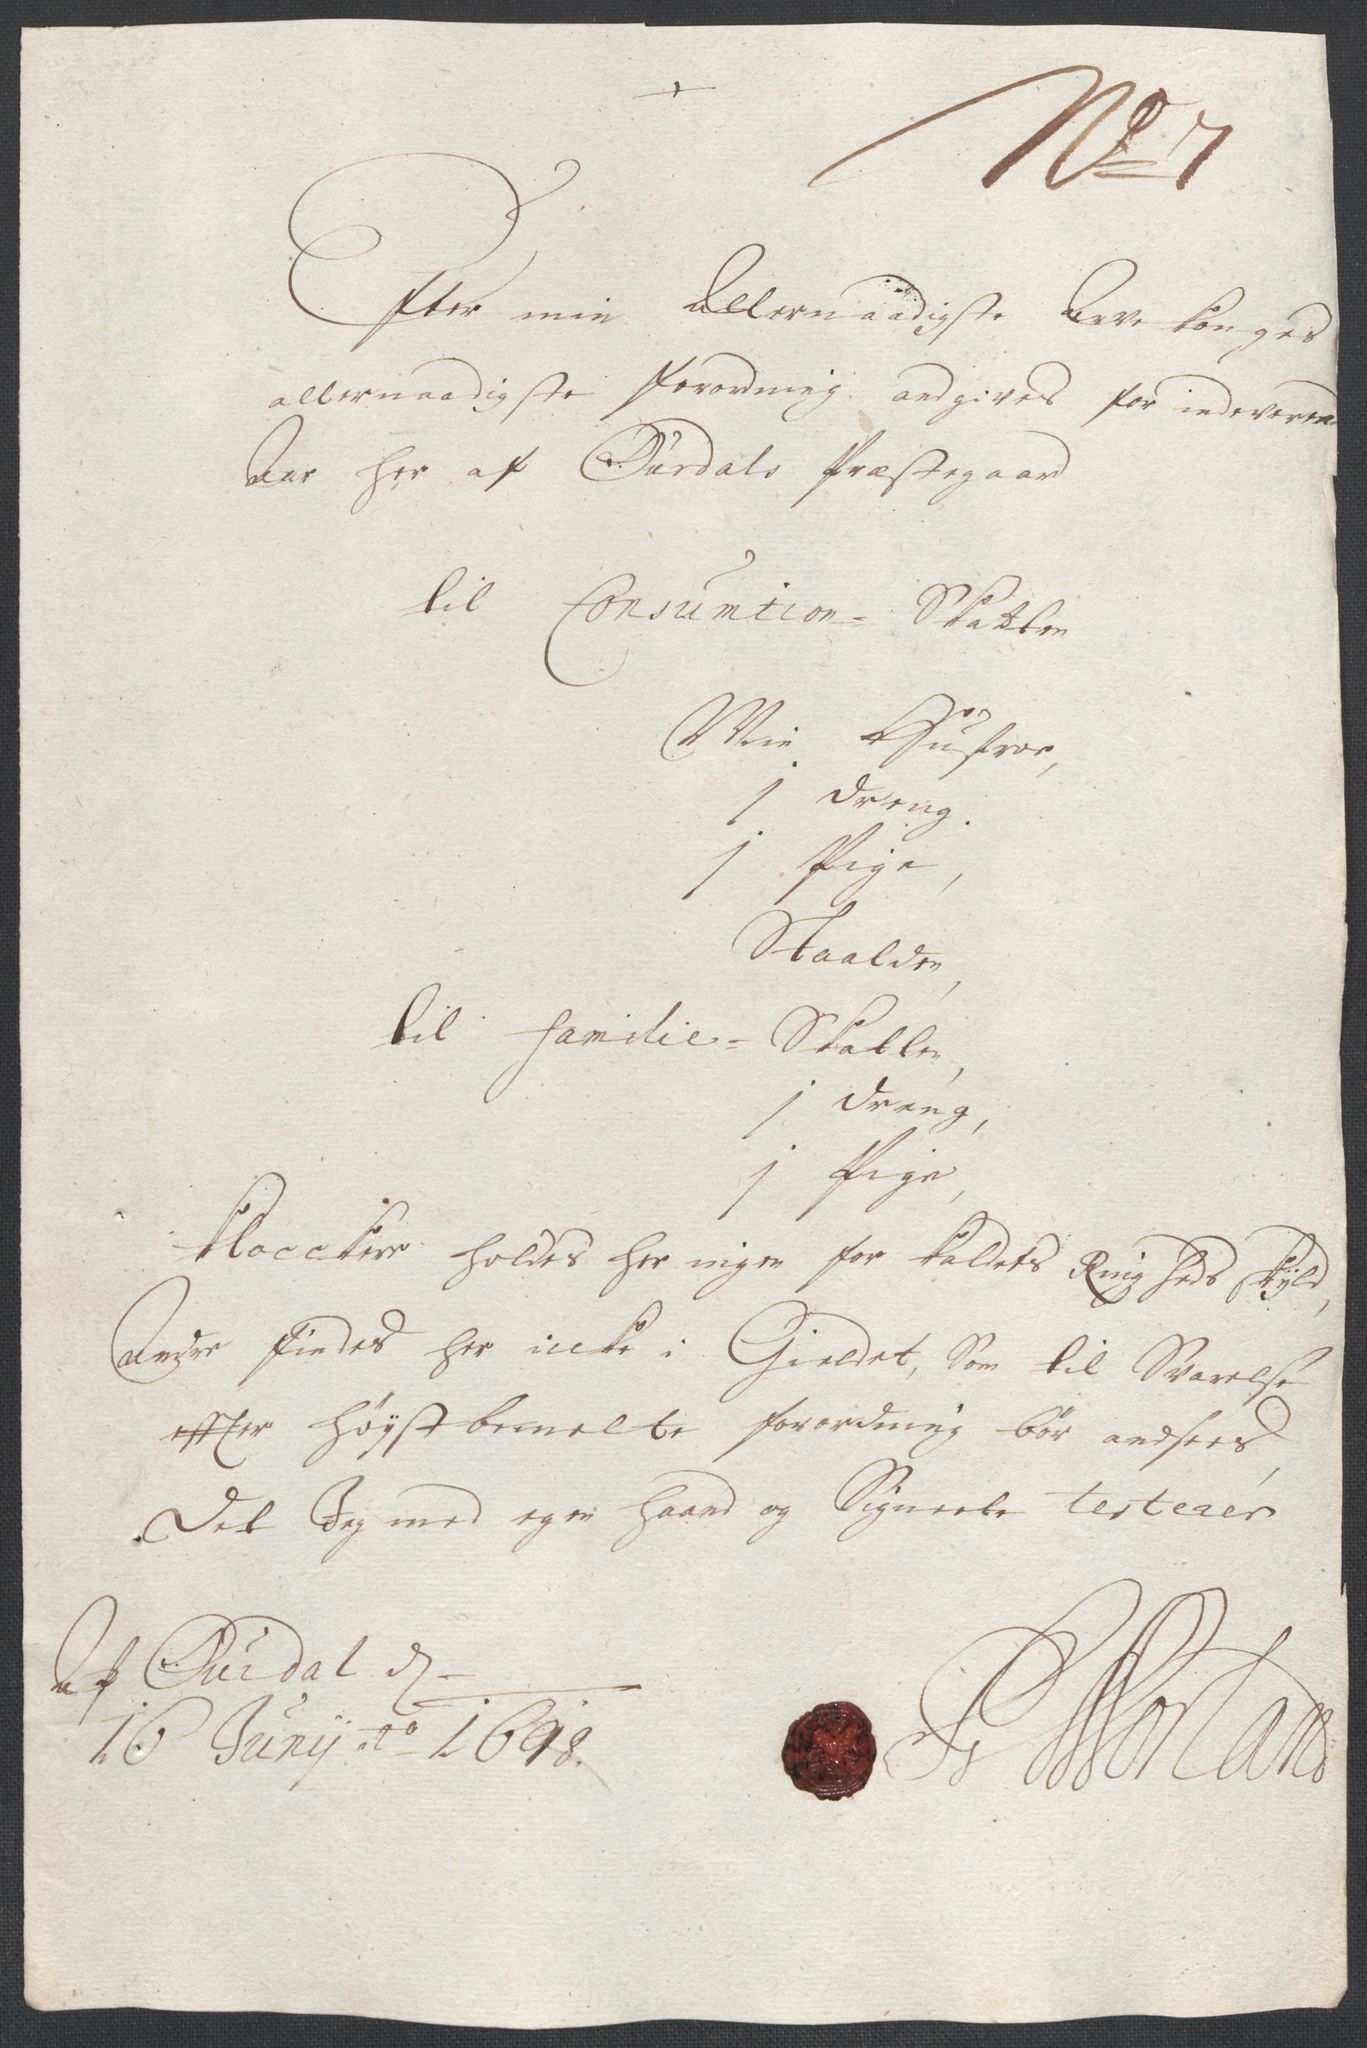 No 7
Efter min Allernaadigste Arve Konges
allernaadigste forordning andgives for indeveren
Aar her af Ourdals Præstegaard
til Consumtion= Skatten
Min Hustroe,
j dreng.
j Pige,
Staalden,
til familie= Skatten,
j dreng,
j Pige,
Kloccker holdes her ingen for Kaldets Ringheds skyld,
Andre findes her icke i Gieldet, som til Svarelse
effter høystbemelte forordning bør andsees,
Det Jeg med egen haand og Signete testerer
Af Ourdal d
16 Junij Ao 1698.